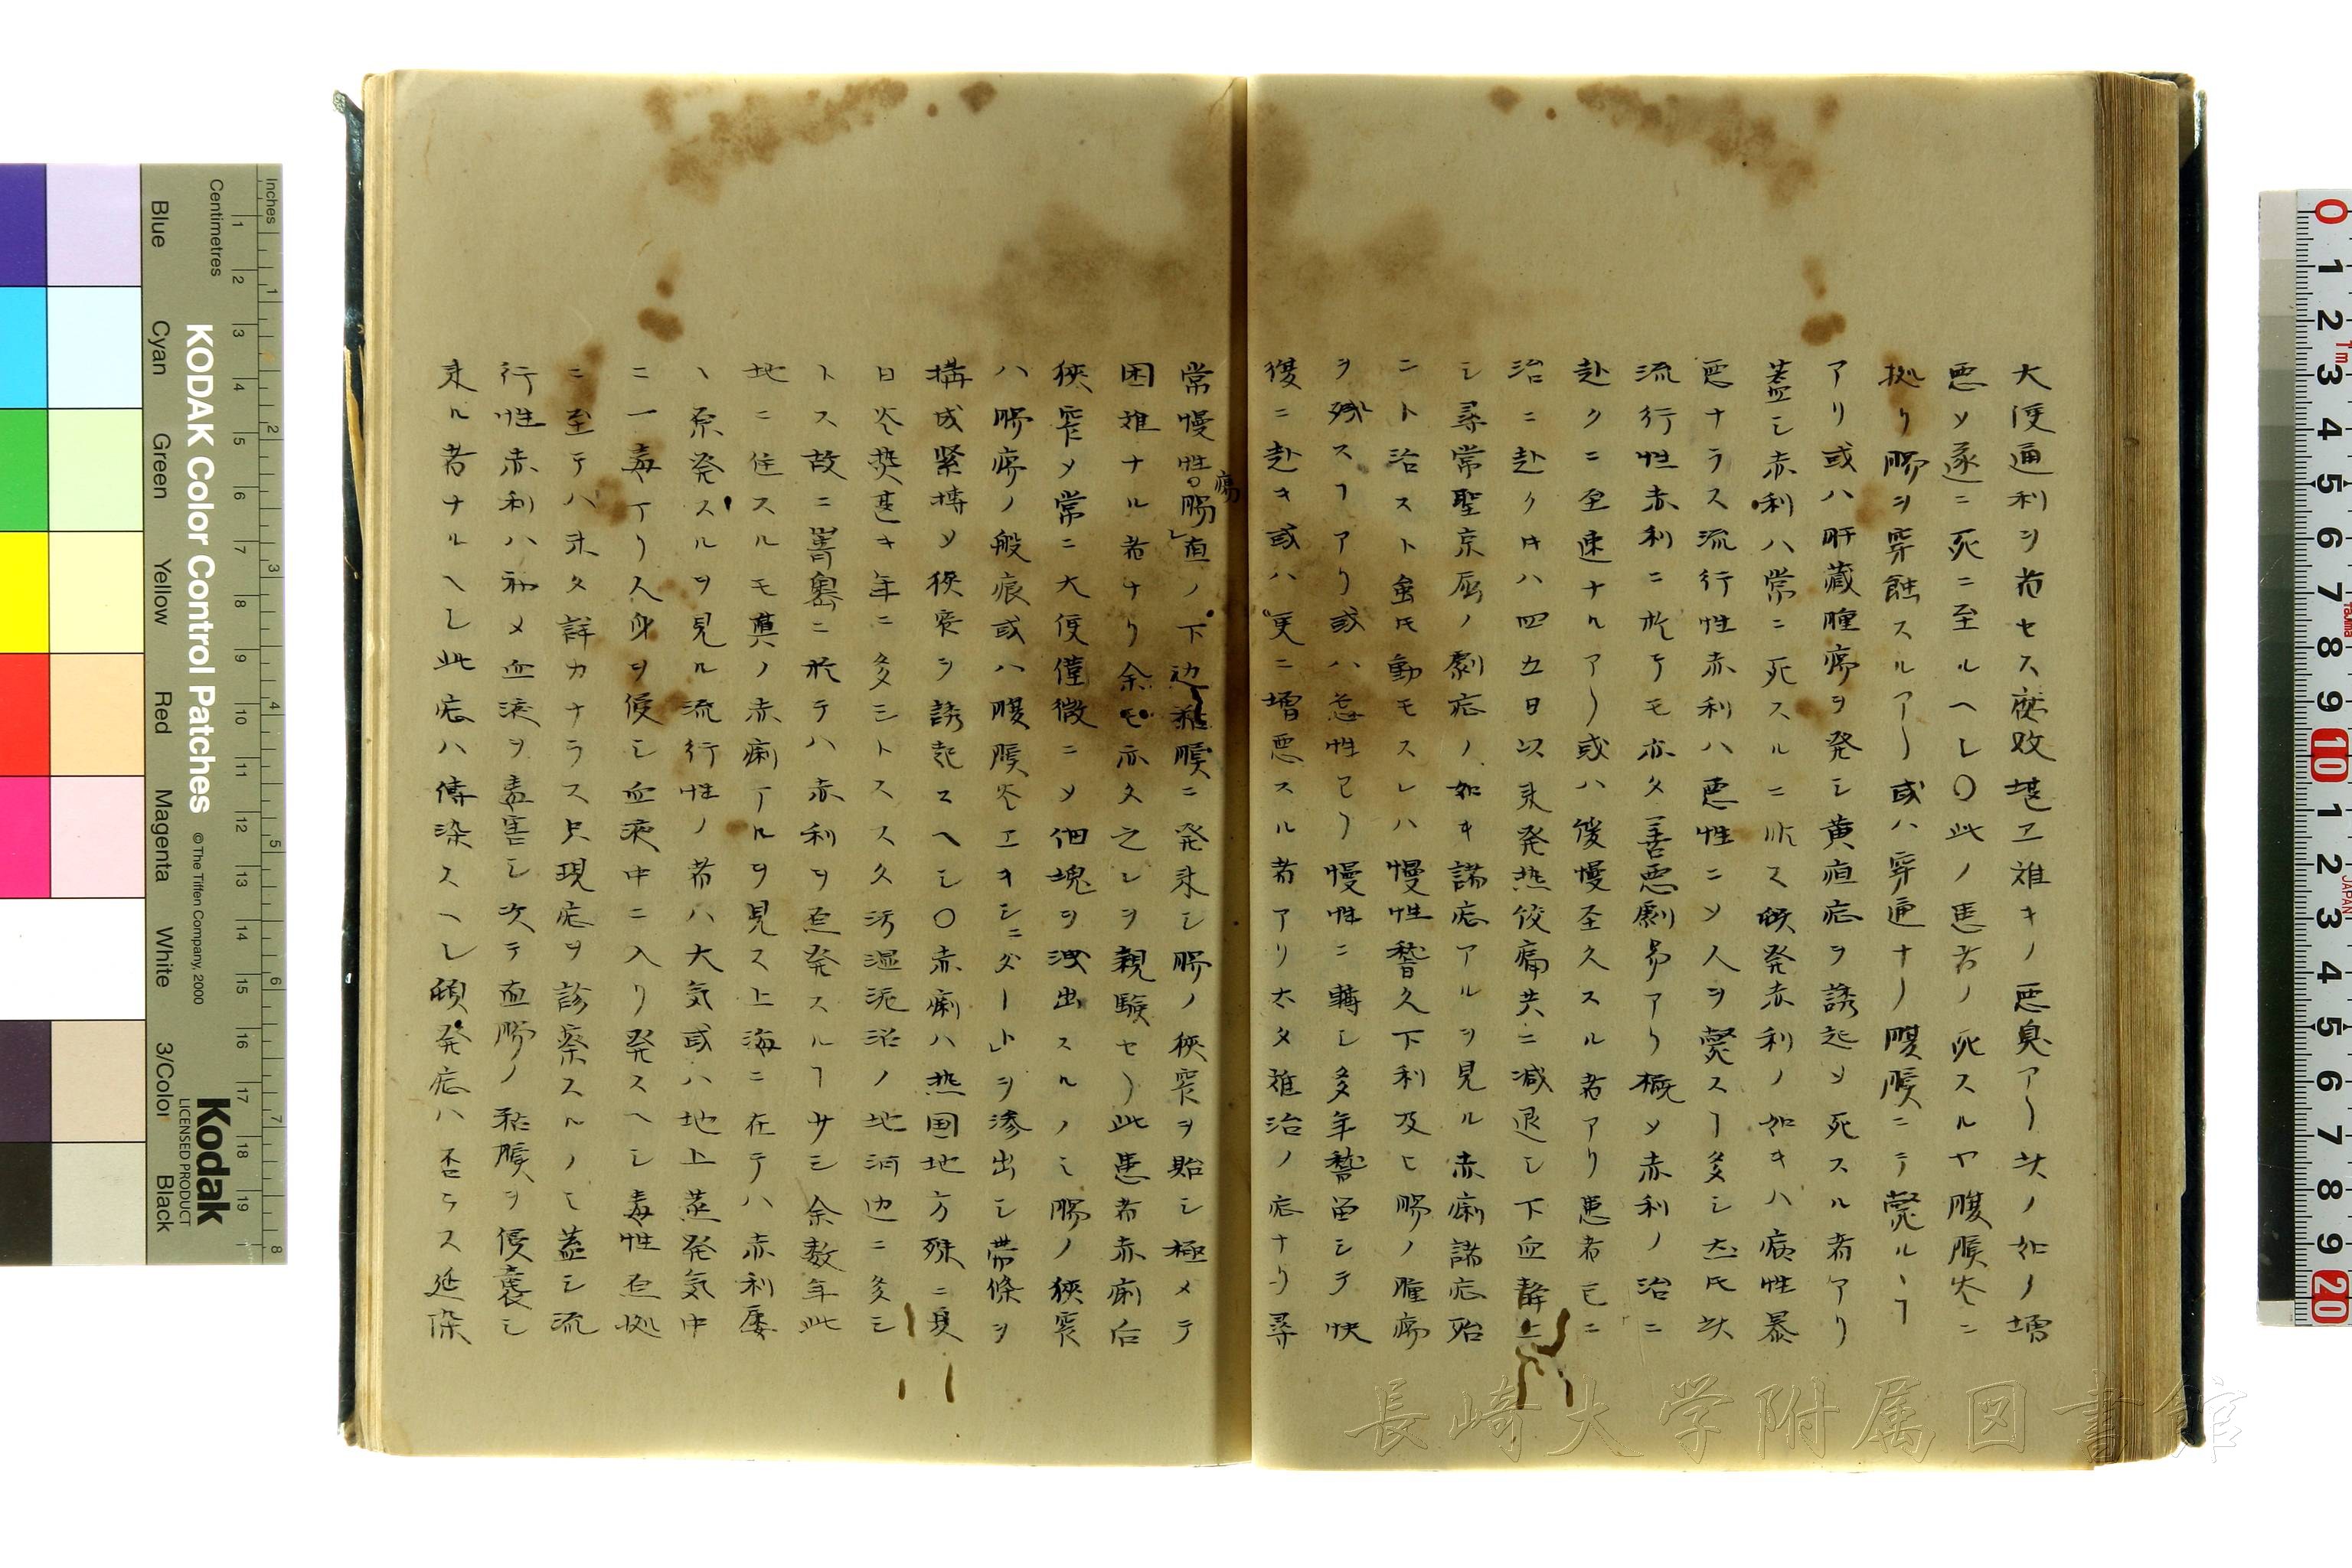 大便通利ヲ省セス腐敗堪ヱ難キノ悪臭アリ狀ノ如ク増
悪ソ遂ニ死ニ至ルヘシ〇此ノ患者ノ死スルヤ腹膜炎ニ
拠リ腸ヲ穿蝕スルアリ或ハ穿通ナク腹膜ニテ斃ルヽヿ
アリ或ハ肝蔵腫瘍ヲ発シ黄疸症ヲ誘起ソ死スル者アリ
蓋シ赤利ハ常ニ死スルニ非ス頻発赤利ノ如キハ病性暴
悪ナラス流行性赤利ハ悪性ニソ人ヲ斃スヿ多シ然氏狀
流行性赤利ニ於テモ亦タ善悪劇易アリ概ソ赤利ノ治ニ
赴クニ至速ナルアリ或ハ緩慢至久スル者アリ患者已ニ
治ニ赴クキハ四五日以来発热饺痛共ニ減退シ下血静止
シ尋常聖京屈ノ劇症ノ如キ諸症アルヲ見ル赤痢諸症殆
ニト治スト虽氏動モスレハ慢性稽久下利及ヒ腸ノ腫瘍
ヲ残スヿアリ或ハ急性已リ慢性ニ轉シ多年稽畱シテ快
復ニ赴キ或ハ更ニ増悪スル者アリ太タ難治ノ症ナリ尋
常慢性腸瘍直ノ下边粘膜ニ発来シ腸ノ狹窄ヲ貽シ極メテ
困難ナル者ナリ余モ亦タ之レヲ親験セリ此患者赤痢后
狹窄メ常ニ大便僅微ニソ細塊ヲ洩出スルノミ腸ノ狹窄
ハ腸瘍ノ般痕或ハ腹膜炎ヱキシニダート」ヲ滲出シ帯條ヲ
構成緊搏ソ狹窄ヲ誘起スヘシ〇赤痢ハ热国地方殊ニ夏
日炎热甚キ年ニ多シトスス久汚湿泥沼ノ地河边ニ多シ
トス故ニ
地ニ住スルモ真ノ赤痢アルヲ見ス上海ニ在テハ赤利屡
ヽ原発スルヲ見ル流行性ノ者ハ大気或ハ地上蒸発気中
ニ一毒アリ人身ヲ侵シ血液中ニ入リ発スヘシ毒性
ニ至テハ未タ詳カナラス只現症ヲ診察スルノミ蓋シ流
行性赤利ハ初メ血液ヲ毒害シ次テ直腸ノ粘膜ヲ侵襲シ
来ル者ナルヘシ此症ハ傳染スヘシ頻発症ハ否ラス延染
長崎大学附属図書館
KODAK Color Control Patches
© The Tiffen Company, 2000
Kodak
LICENSED PRODUCT
Inches
Centimetres
Blue
Cyan
Green
Yellow
Red
Magenta
White
3/Color
Black
JAPAN